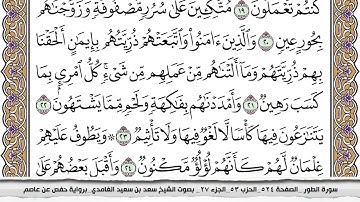 كُنتُمْ تَعْمَلُونَ ١٩ مُتَّكِـِٔينَ عَلَىٰ سُرُرٍ مَّصْفُوفَةٍ وَزَوَّجْنَٰهُم
بِحُورٍ عِينٍ ٢٠ وَٱلَّذِينَ ءَامَنُوا۟ وَٱتَّبَعَتْهُمْ ذُرِّيَّتُهُم بِإِيمَٰنٍ أَلْحَقْنَا
بِهِمْ ذُرِّيَّتَهُمْ وَمَآ أَلَتْنَٰهُم مِّنْ عَمَلِهِم مِّن شَىْءٍ كُلُّ ٱمْرِئٍۭ بِمَا
كَسَبَ رَهِينٌ ٢١ وَأَمْدَدْنَٰهُم بِفَٰكِهَةٍ وَلَحْمٍ مِّمَّا يَشْتَهُونَ ٢٢
يَتَنَٰزَعُونَ فِيهَا كَأْسًا لَّا لَغْوٌ فِيهَا وَلَا تَأْثِيمٌ ٢٣ ۞ وَيَطُوفُ عَلَيْهِمْ
غِلْمَانٌ لَّهُمْ كَأَنَّهُمْ لُؤْلُؤٌ مَّكْنُونٌ ٢٤ وَأَقْبَلَ بَعْضُهُمْ عَلَىٰ
سورة الطور_الصفحة ٥٢٤_الحزب ٥٣_الجزء ٢٧_ بصوت الشيخ سعد بن سعيد الغامدي_برواية حفص عن عاصم